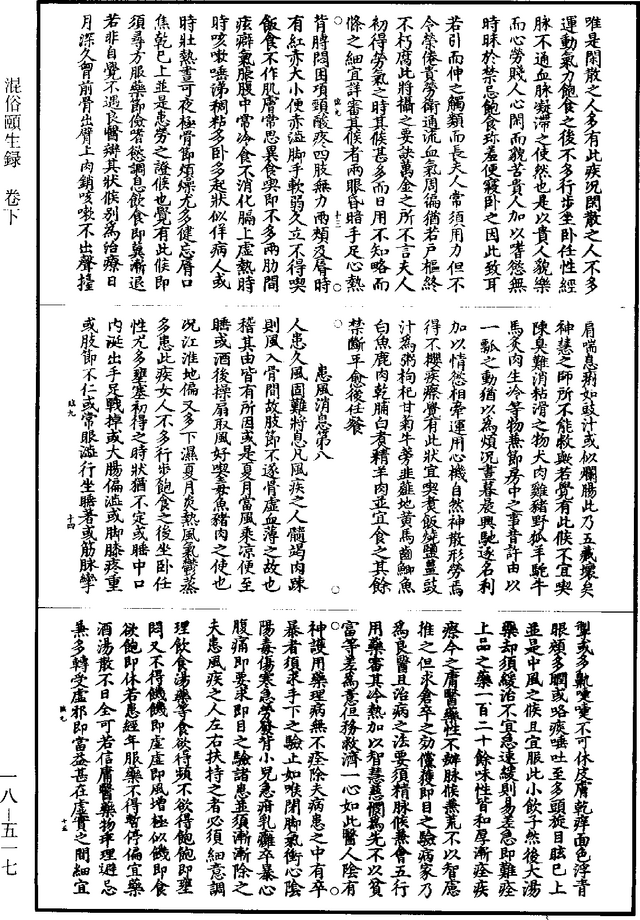 混俗頤生録 卷下
唯是閑散之人多有此疾況閑散之人不多
運動氣力飽食之後不多行步坐卧任性經
脉不通血脉凝滯之使然也是以貴人貌樂
而心勞賤人心閑而貌苦貴人加以嗜慾無
時昧於禁忌飽食珎羞便寢卧之因此致耳
若引而伸之觸類而長夫人常須用力但不
令榮倦貴勞衛通流血氣周徧猶若戶樞終
不朽腐此將攝之要訣萬金之所不言夫人
初得勞氣之時其候甚多而日用不知略而
條之細宜詳審其候者兩眼昏暗手足心熱
背膊悶困項頸酸疼四肢無力兩頰及脣時
有紅赤大小便赤澁脚手軟弱久立不得喫
飯食不作肌膚常思異食喫即不多兩肋間
痃癖氣脹腹中常冷食不消化膈上虛熱時
時咳嗽唾涕稠粘多卧多起狀似佯病人或
時壯熱晝可夜極骨節煩燥尤多健忘脣口
焦乾巳上並是患勞之證候也覺有此候即
須尋方服藥節儉嗜慾調息飲食即冀漸退
若非自覺不遇良醫辯其狀候别為治療日
月深久胷前骨出臂上肉銷咳嗽不出聲擡
肩喘息痢如豉汁或似爛腸此乃五藏壞矣
神慧之師所不能救與若覺有此候不宜喫
陳臭難消粘滑之物犬肉雞豬野狐羊駞牛
馬炙肉生冷等物兼節房中之事昔許由以
一瓢之動猶以為煩況晝暮晨興馳逐名利
加以情慾相牽運用心機自然神散形勞焉
得不攖疾瘵覺有此狀宜喫煑飯燒鹽薑豉
汁為粥枸杞甘菊牛蒡韭薤地黄馬齒鯽魚
白魚鹿肉乾脯白煑精羊肉並宜食之其餘
禁斷平愈後任餐
患風消息第八
人患久風固難將息凡風疾之人髓竭肉踈
則風入骨間故肢節不遂骨虛血薄之故也
稽其由皆有所因或是夏月當風乗涼便至
睡或酒後操扇取風好喫毒魚豬肉之使也
況江淮地偏又多下濕夏月炎熱風氣鬱蒸
多患此疾女人不多行步飽食之後坐卧任
性尤多壅塞初得之時狀猶不定或睡中口
内涎出手足戰掉或大腸偏澁或脚膝疼重
或肢節不仁或常眼澁行坐睡著或筋脉攣
掣或多𩨲啑嚏不可休皮膚乾痒面色浮青
眼頰多瞤或咯痰唾吐至多頭旋目眩巳上
並是中風之候且宜服此小飲子然後大湯
藥却須緩治不宜急速緩則易差急即難痊
上品之藥一百二十餘味性皆和厚漸痊疾
療今之庸醫藥性不辯脉候無荒不以智慮
推之但求倉卒之効僅獲即目之驗病家乃
為良醫且治病之法要須精脉候兼會五行
用藥審其冷熱加以智慧慈憫為先不以貧
富等差為意但務救濟一心如此醫人陰有
神護用藥理病無不痊除夫病患之中有卒
暴者須求手下之驗止如喉閉脚氣衝心陰
陽毒傷寒急勞發背小兒急疳乳癰卒暴心
腹痛即要求即目之驗諸患並須漸漸除之
夫患風疾之人左右扶持之者必須細意調
理飲食湯藥等食欲得頻不欲得飽飽即壅
悶又不得饑饑即虛虛即風增極似饑即食
欲飽即休若患經年服藥不得暫停偏宜藥
酒湯散不日全可若信庸醫藥物乖理避忌
兼多轉受虛邪即當益甚在虛實之間細宜
一八—五一七